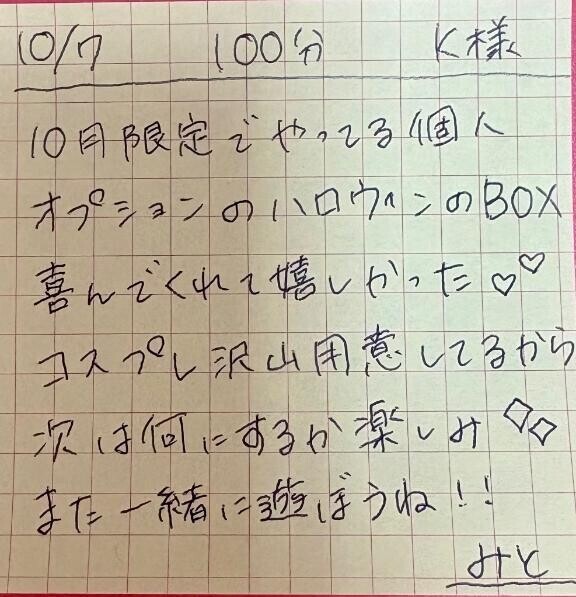 10/7 100分 K様
10月限定でやってる個人
オプションのハロウィンのBOX
喜んでくれて嬉しかった♡♡
コスプレ沢山用意してるから
次は何にするか楽しみ◇◇
また一緒に遊ぼうね!!
みと